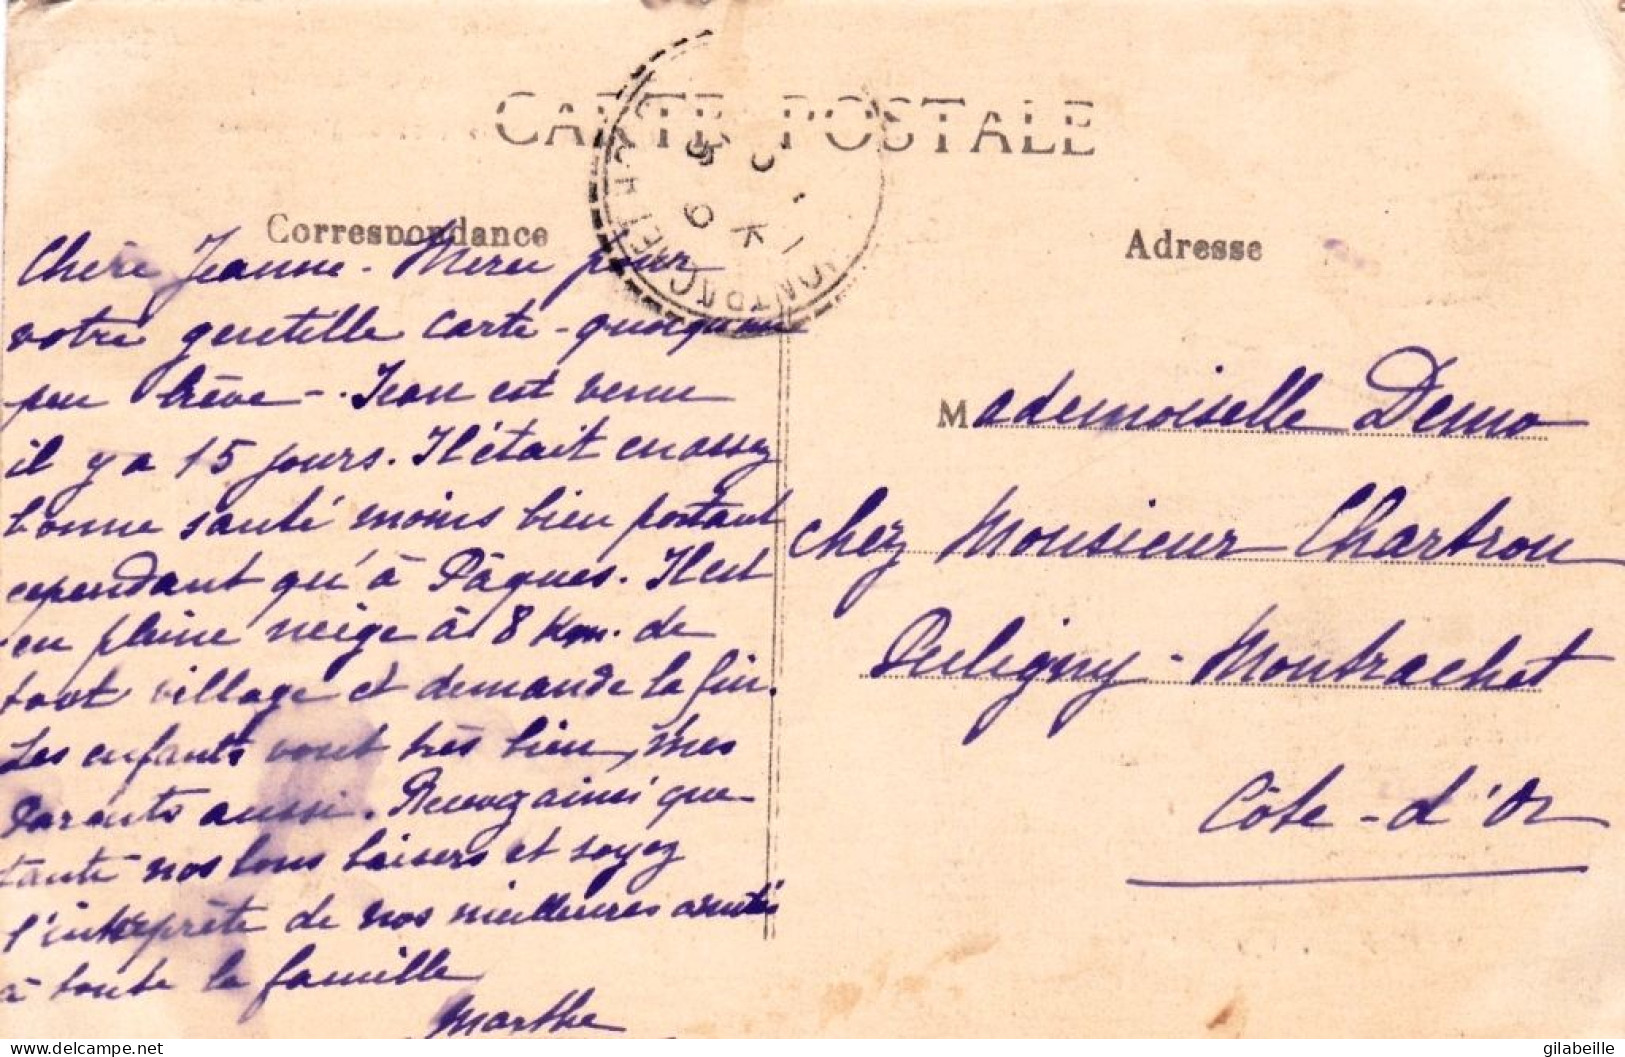 CARTE POSTALE
Correspondance
Adresse
Chère Jeanne - Merci pour
votre gentille carte - quoiqu'un
peu brève - . Jean est venu
il y a 15 jours. Il était en assez
bonne santé moins bien portant
cependant qu'à Pâques. Il est
en pleine neige à 8 Km. de
tout village et demande la fin.
Les enfants vont très bien, mes
Parents aussi. Recevez ainsi que
tante nos bons baisers et soyez
l'interprète de nos meilleures amitiés
à toute la famille
Marthe
Mademoiselle Demo
chez Monsieur Chartron
Puligny - Montrachet
Côte - d'Or
delcampe.net
gilabeille